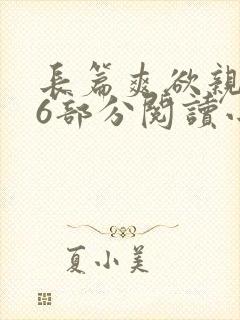 長篇爽欲親
6部分閱讀小
夏小美